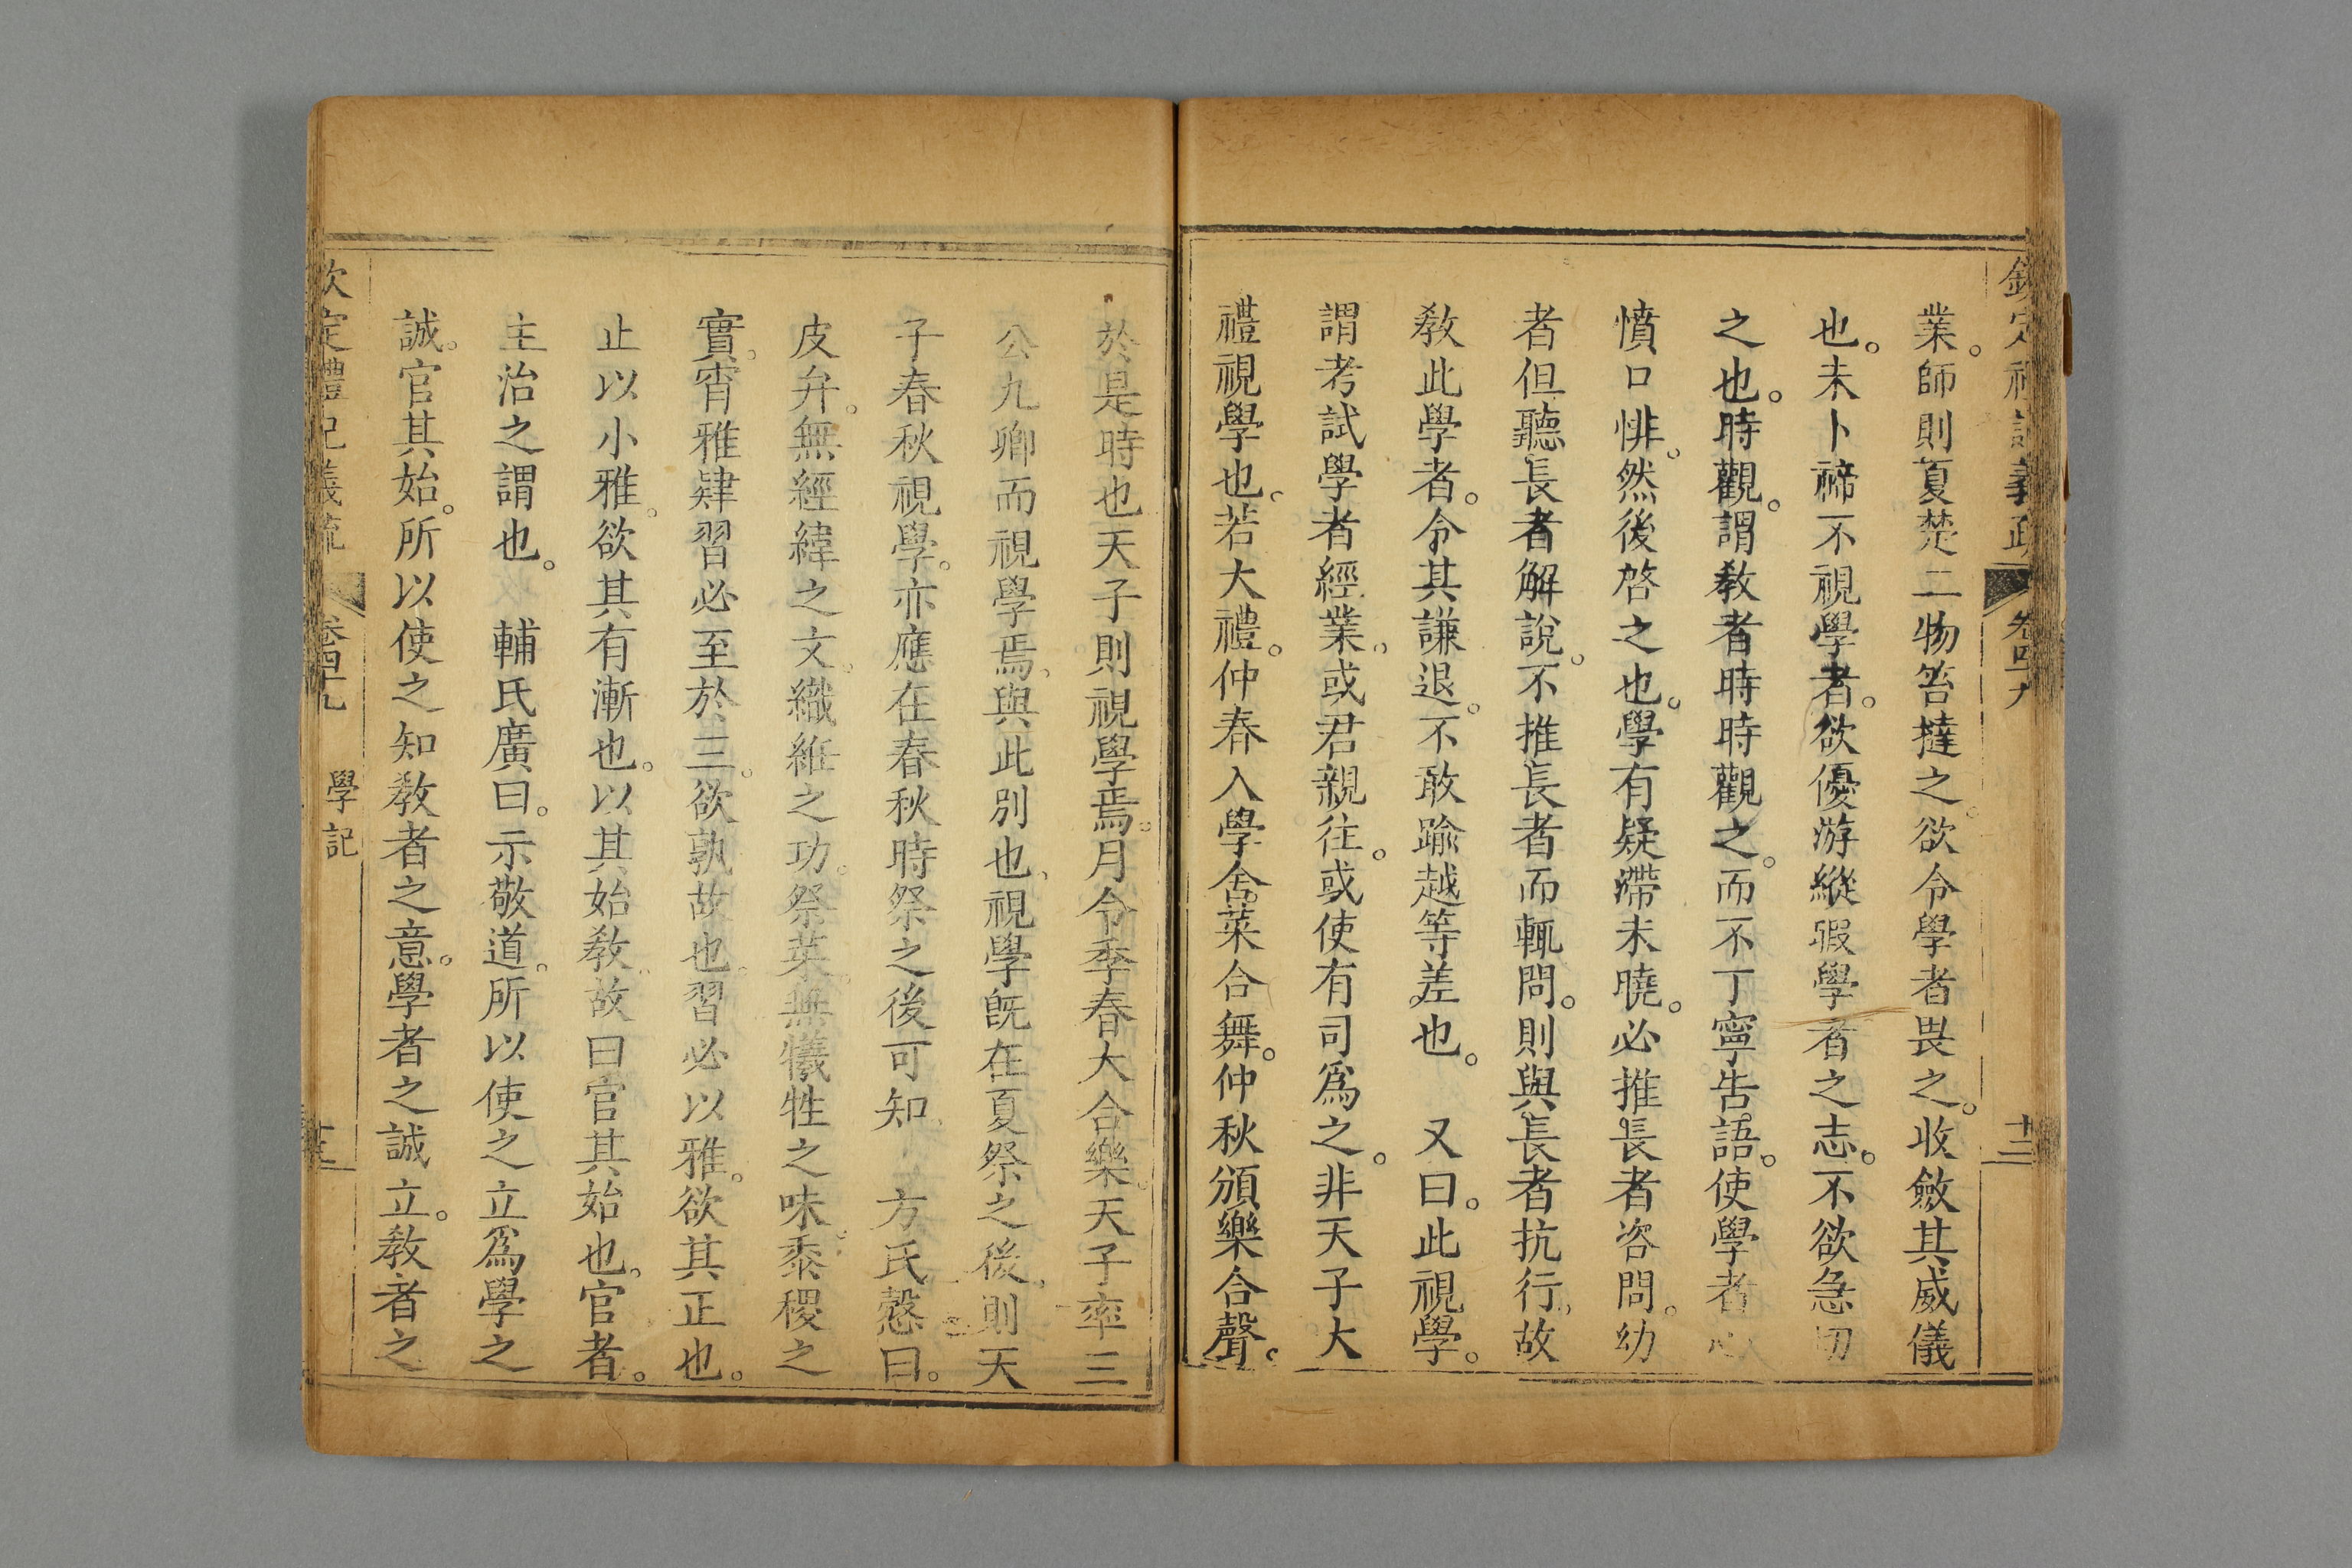 欽定禮記義疏 卷四十九 十二
業。師則夏楚二物笞撻之。欲令學者畏之。收斂其威儀
也。未卜禘不視學者。欲優游縱暇學者之志。不欲急切
之也。時觀。謂敎者時時觀之。而不丁寧告語。使學者心
憤口悱。然後啓之也。學有疑滯未曉。必推長者咨問。幼
者但聽長者解說。不推長者而輒問。則與長者抗行。故
敎此學者。令其謙退。不敢踰越等差也。 又曰。此視學。
謂考試學者經業。或君親往。或使有司爲之。非天子大
禮視學也。若大禮。仲春入學舍菜合舞。仲秋頒樂合聲。
於是時也天子則視學焉。月令季春大合樂。天子率三
公九卿而視學焉。與此別也。視學旣在夏祭之後。則天
子春秋視學。亦應在春秋時祭之後可知 方氏慤曰。
皮弁。無經緯之文。織絍之功。祭菜。無犧牲之味。黍稷之
實。宵雅肄習必至於三。欲孰故也。習必以雅。欲其正也。
止以小雅。欲其有漸也。以其始敎。故曰官其始也。官者。
主治之謂也。 輔氏廣曰。示敬道。所以使之立爲學之
誠。官其始。所以使之知敎者之意。學者之誠立。敎者之
欽定禮記義疏 卷四十九 學記